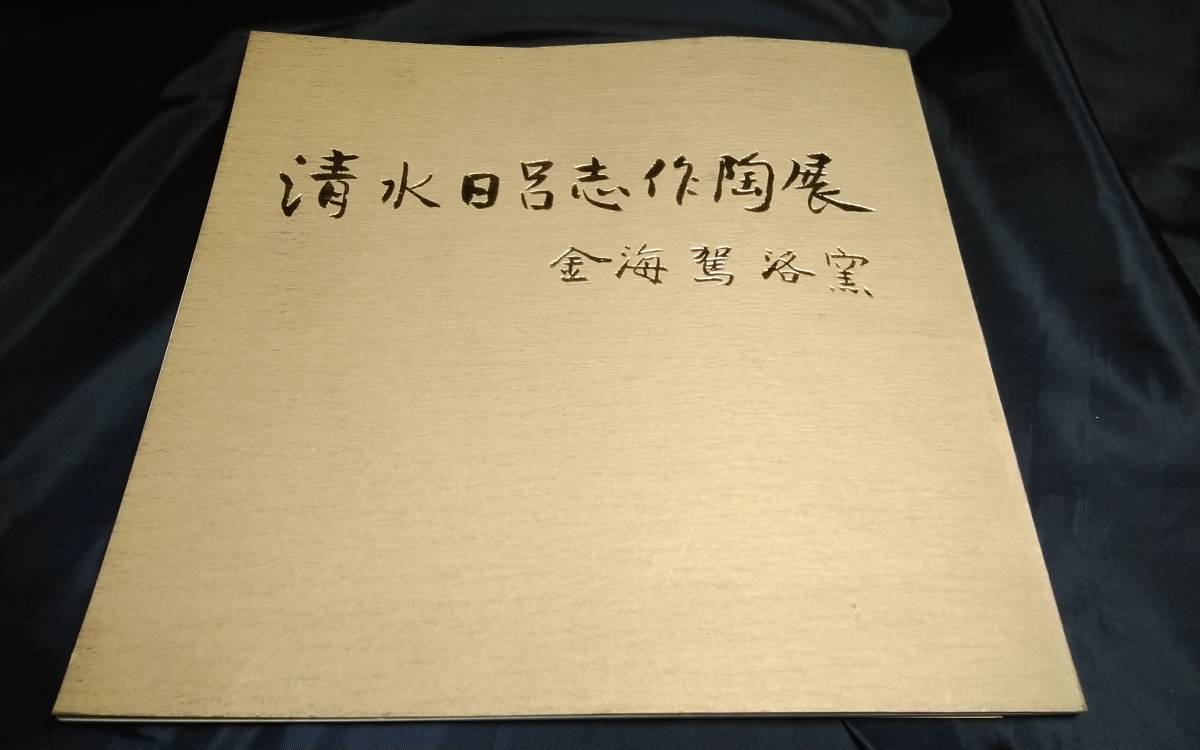 清水日呂志作陶展
金海駕洛窯